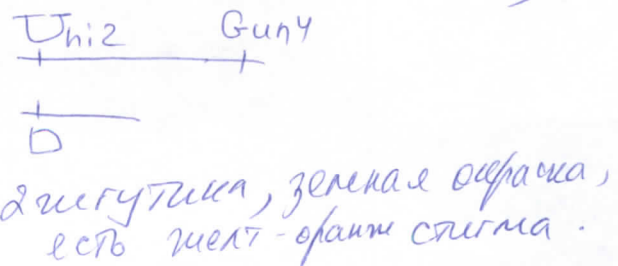 Uni2 Gun4
D
2 жгутика, зеленая окраска,
есть желт-оранж стигма.